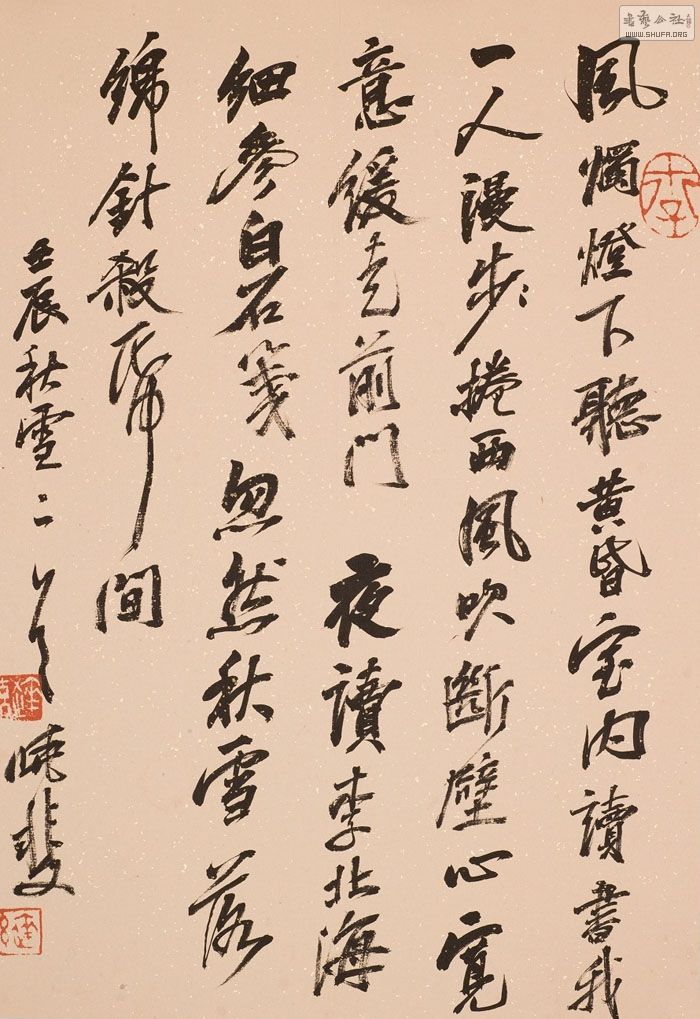 風燭燈下聽黃昏室内讀書我
一人漫步捲西風吹斷壁心寬
意緩走前門 夜讀李北海
細參白石箋忽然秋雪落
綿針殺紙間
壬辰秋雪二
曉斐
書藝公社
WWW.SHUFA.ORG